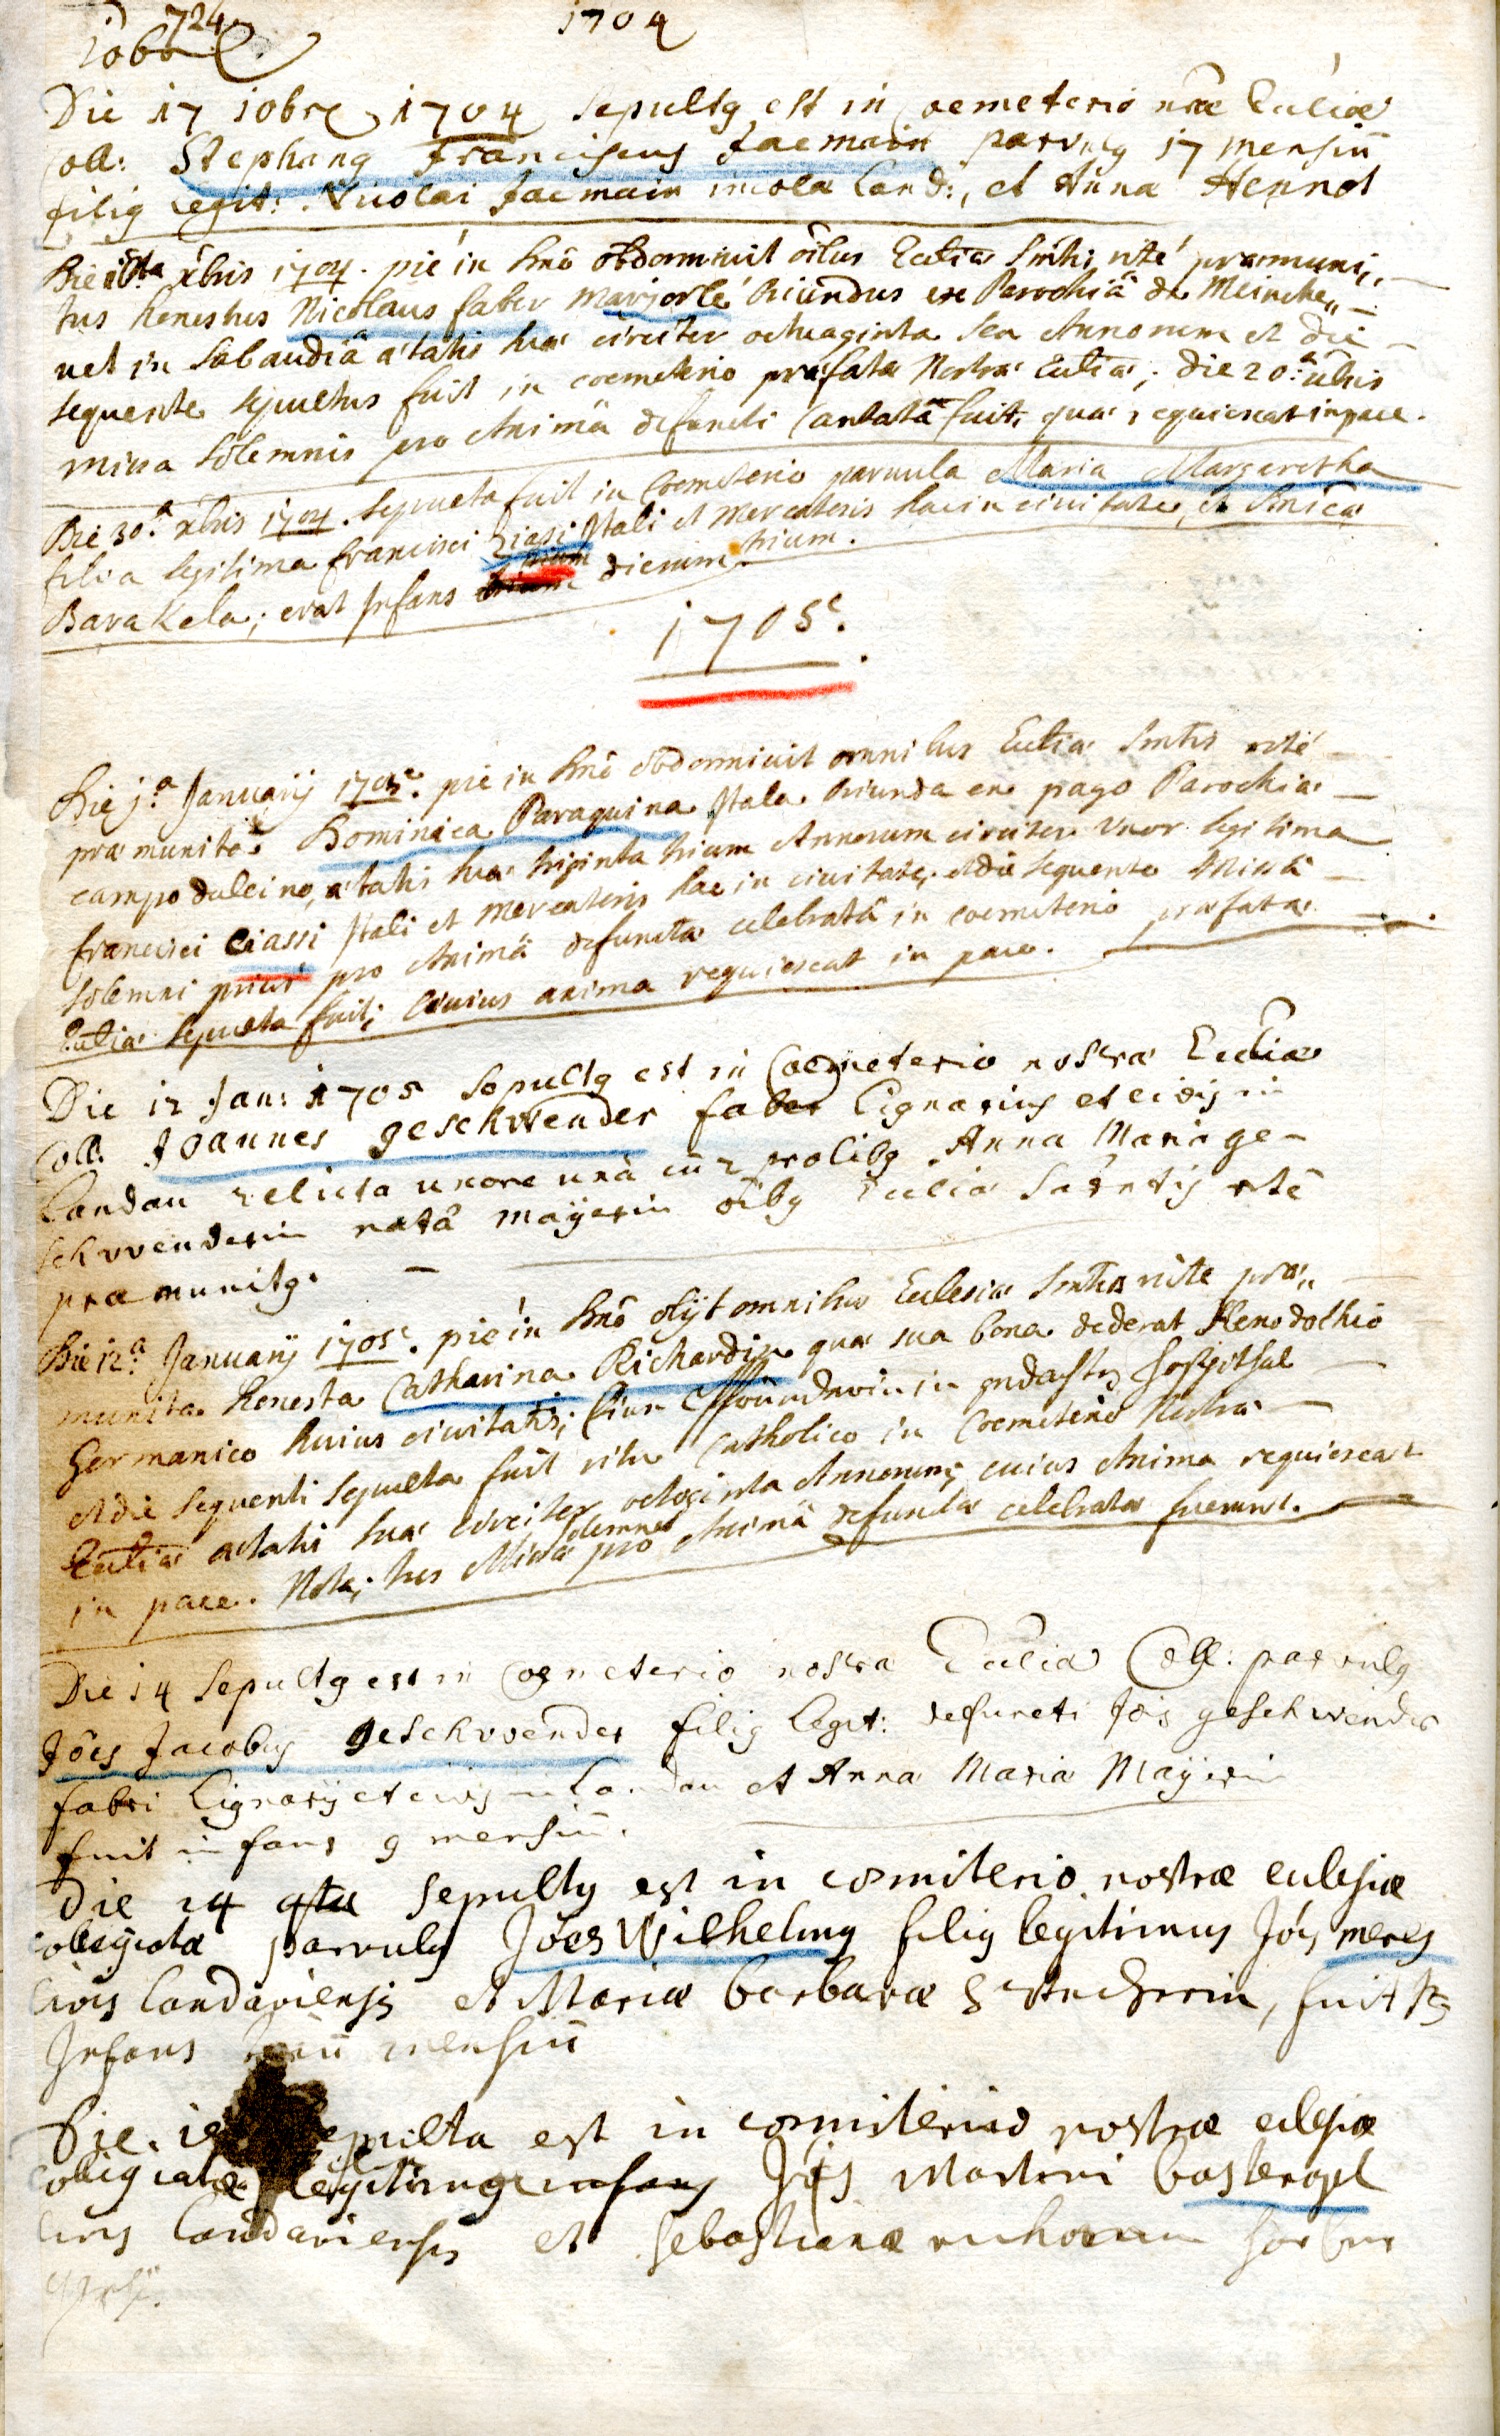 724
1704
10bre
Die 17 10bre 1704 Sepultg est in Coemeterio nrae Eccliae
Coll: Stephang Franciscus Jacmain parvulg 17 mensiu
filig legit: Nicolai Jacmain incola Land:, et Anna Hennot
xbris 1704. pie in Dno obdormivit oibus Ecclia Smtis rite praemuni,,
tus honestus Nicolaus faber Marjorle oriundus ex Parochia de
in Sabaudia aetatis suae circiter octuaginta sex Annorum et die
sequente sepultus fuit in coemeterio praefatae Nostrae Eccliae; die 20.a xbris
missa solemnis pro Anima defuncti Cantata fuit, quae requiescat in pace.
Die 30.a xbris 1704. sepulta fuit in Coemeterio parvula Maria Margaretha
filia legitima Francisci Ziasi Itali et Mercatoris hac in civitate, et Anica
Barakela; erat Infans dierum trium.
1705.
Die 1.a Januarij 1705. pie in Dno obdormivit omnibus Eccliae Smtis rite
praemunita Dominica Paraquina Itala oriunda ex pago Parochiae
campo dulcino, aetatis suae triginta trium Annorum circiter Uxor legitima
Francisci Ciassi Itali et Mercatoris hac in civitate, et die sequente Missa
solemni prius pro Anima defunctae celebrata in coemeterio praefatae
Eccliae sepulta fuit; Cuius anima requiescat in pace.
Die 12 Jan: 1705 Sepultg est in Coemeterio nostrae Eccliae
Coll. Joannes geschwender faber Lignarius et civis in
Landau relicta uxore una cu 2 prolibg Anna Maria ge-
schwenderin nata Mayerin oibg Eccliae Sacrtis rite
praemunitg.
Die 12.a Januarij 1705. pie in Dno obijt omnibus Ecclesiae Smtis rite prae,,
munita honesta Catharina Richardin quae sua bona dederat Xenodochio
Germanico huius civitatis; hospithal
et die sequenti sepulta fuit ritu Catholico in Coemeterio Nostrae
Eccliae aetatis suae circiter octoginta Annorum; cuius Anima requiescat
in pace. Nota; tres Missae solemnes pro Anima defunctae celebratae fuerunt.
Die 14 Sepultg est in Coemeterio nostra Eccliae Coll: parvulg
Joes Jacobus geschwender filig legit: defuncti Jois geschwender
fabri Lignarij et civis in Landau et Anna Maria Mayerin
fuit infans 9 mensiu.
Die 14 sepultg est in coemiterio nostrae eclesiae
collegiatae parvulg Joes Wilhelmg filig legitimus Jois meres
civis Landaviensis et Mariae barbarae fuit
Infans mensiu
Die sepulta est in coemiterio nostrae eclesiae
collegiatae legitimg infans Jois Martini basterogel
civis Landaviensis et Sebastianae